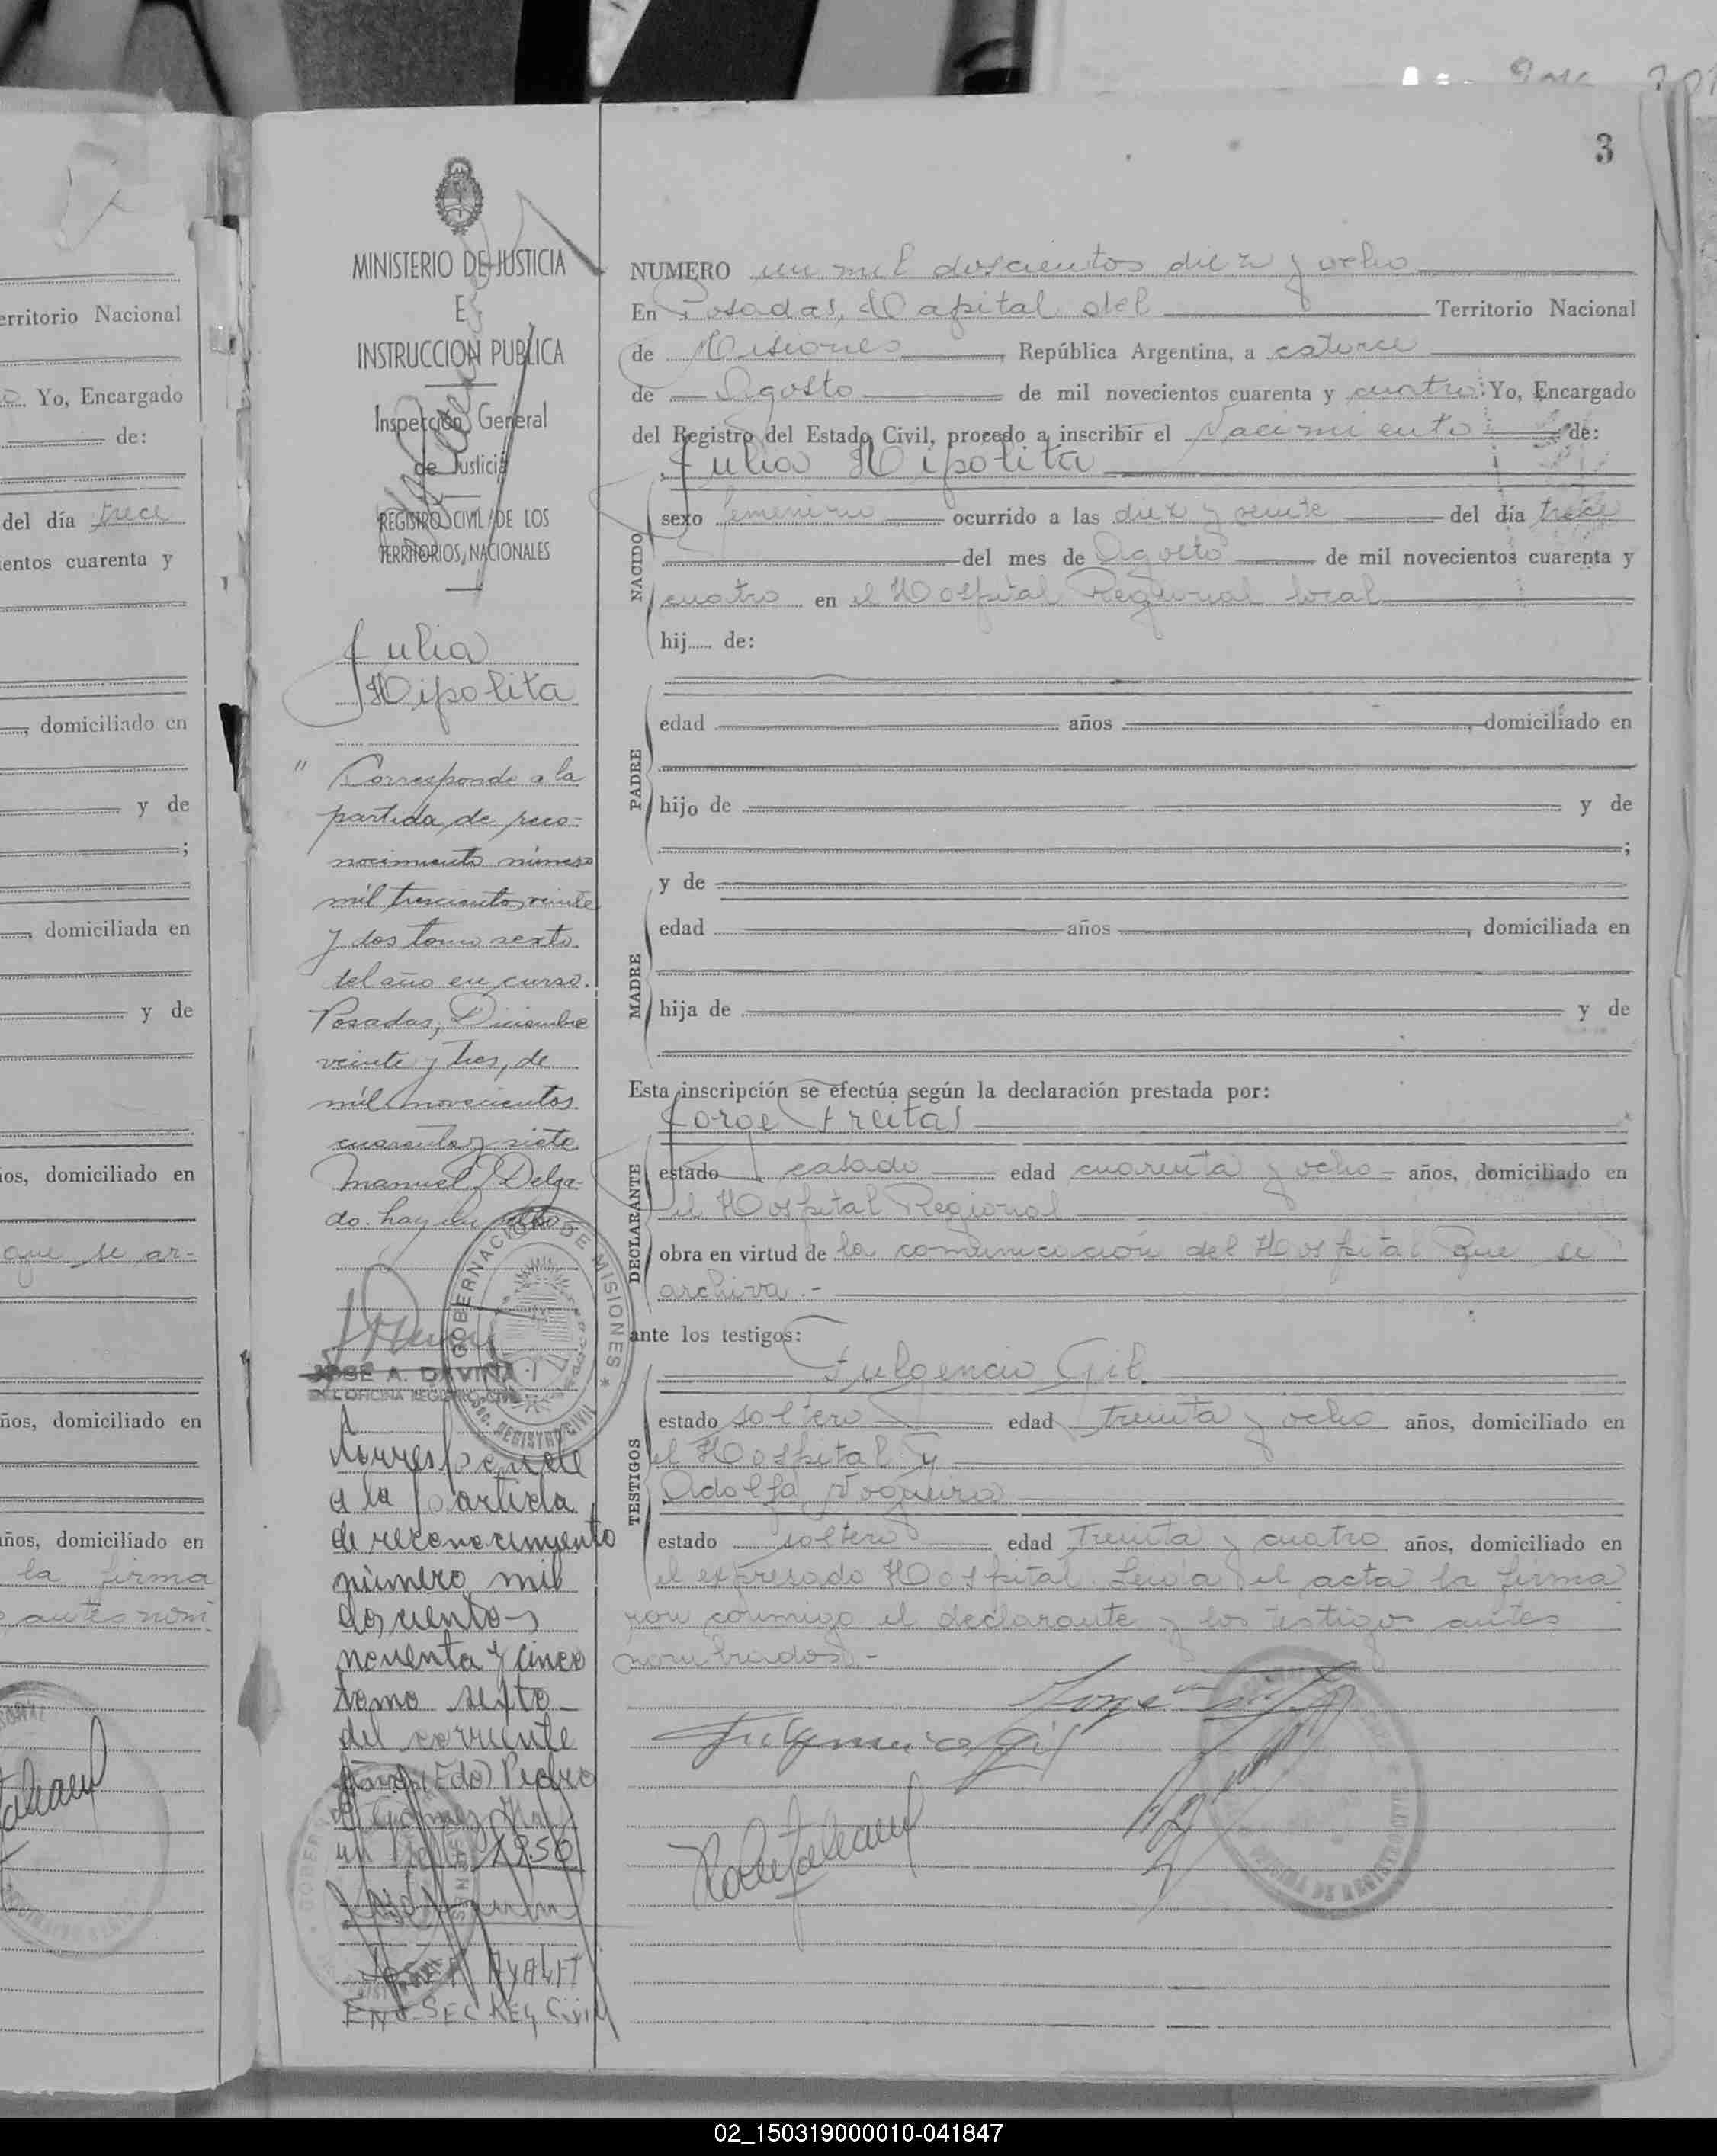 3
MINISTERIO DE JUSTICIA
E
INSTRUCCION PUBLICA
Inspección General
de Justicia
REGISTRO CIVIL DE LOS
TERRITORIOS NACIONALES
Julia
Hipolita
" Corresponde a la
partida de reco-
nocimiento número
mil trescientos veinte
y dos tomo sexto
del año en curso.
Posadas, Diciembre
veinte y tres, de
mil novecientos
cuarenta y siete
Manuel Delga-
do. hay un sello
JOSE A. DAVIÑA
GOBERNACION DE MISIONES
REGISTRO CIVIL
Corresponde
a la partida
de reconocimiento
número mil
doscientos
noventa y cinco
tomo sexto
del corriente
(Edo) Pedro
Gomez Hay
un sello 1950
AYALA
ENC. SEC REG Civil
NUMERO un mil doscientos diez y ocho
En Posadas, Capital del Territorio Nacional
de Misiones, República Argentina, a catorce
de Agosto de mil novecientos cuarenta y cuatro: Yo, Encargado
del Registro del Estado Civil, procedo a inscribir el Nacimiento de:
Julia Hipolita
NACIDO
sexo femenino ocurrido a las diez y veinte del día trece
del mes de Agosto de mil novecientos cuarenta y
cuatro en el Hospital Regional local
hij..... de:
PADRE
edad años , domiciliado en
hijo de y de
;
y de
MADRE
edad años , domiciliada en
hija de y de
Esta inscripción se efectúa según la declaración prestada por:
Jorge Freitas
DECLARANTE
estado casado edad cuarenta y ocho años, domiciliado en
el Hospital Regional
obra en virtud de la comunicación del Hospital que se
archiva.-
ante los testigos:
Fulgencio Gil.
TESTIGOS
estado soltero edad treinta y ocho años, domiciliado en
el Hospital y
Adolfa Noguera
estado soltero edad treinta y cuatro años, domiciliado en
el expresado Hospital. Leida el acta la firma
ron conmigo el declarante y los testigos antes
nombrados.-
Fulgencio Gil
erritorio Nacional
Yo, Encargado
de:
del día trece
ientos cuarenta y
, domiciliado en
y de
;
, domiciliada en
y de
ios, domiciliado en
que se ar-
ños, domiciliado en
años, domiciliado en
la firma
antes nom
02_150319000010-041847